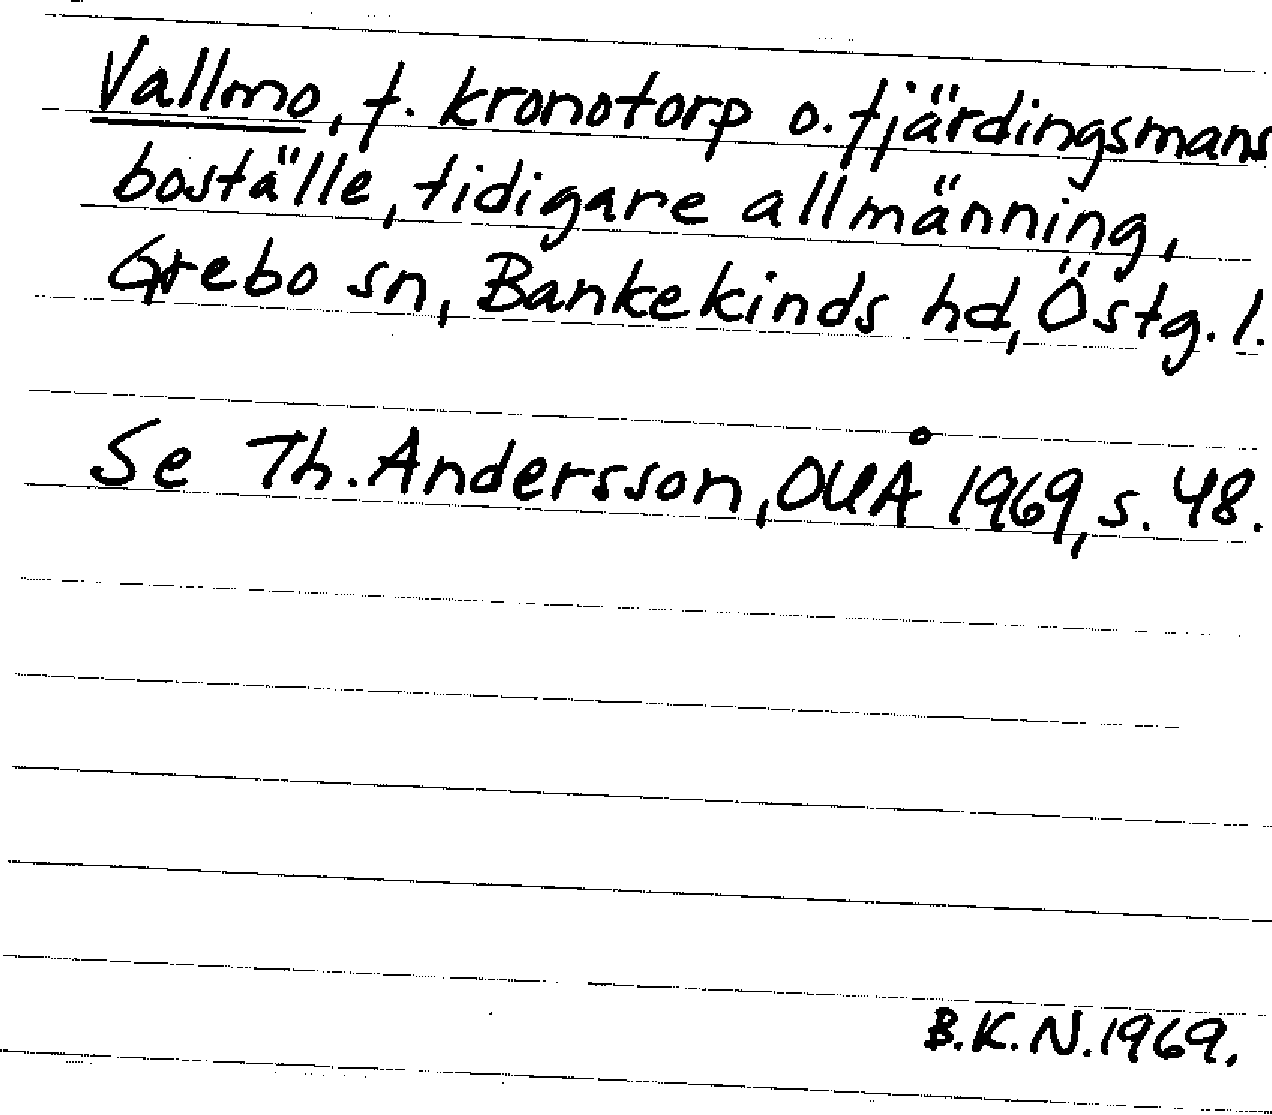 Vallmo, f. kronotorp o. fjärdingsmans
boställe, tidigare allmänning,
Grebo sn, Bankekinds hd, Östg. l.
Se Th. Andersson, OUÅ 1969, s. 48.
B.K.N. 1969.